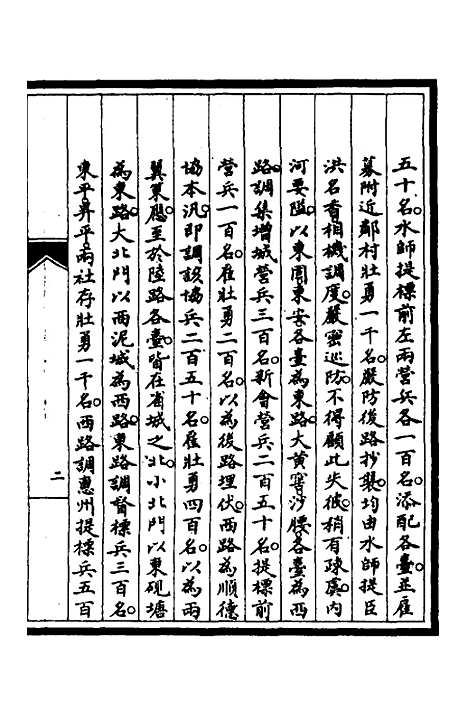 五十名。水師提標前左兩營兵各一百名。添配各臺。並雇
募附近鄰村壯勇一千名。嚴防後路抄襲。均由水師提臣
洪名香相機調度。嚴密巡防。不得顧此失彼。稍有疎虞。內
河要隘。以東圍東安各臺為東路。大黃窖沙腰各臺為西
路。調集增城營兵三百名。新會營兵二百五十名。提標前
營兵一百名。雇壯勇二百名。以為後路埋伏。西路為順德
協本汛。即調該協兵二百五十名。雇壯勇四百名。以為兩
翼策應。至於陸路各臺。皆在省城之北。小北門以東硯塘
為東路。大北門以西泥城為西路。東路調督標兵三百名。
東平昇平兩社存壯勇一千名。西路調惠州提標兵五百
二